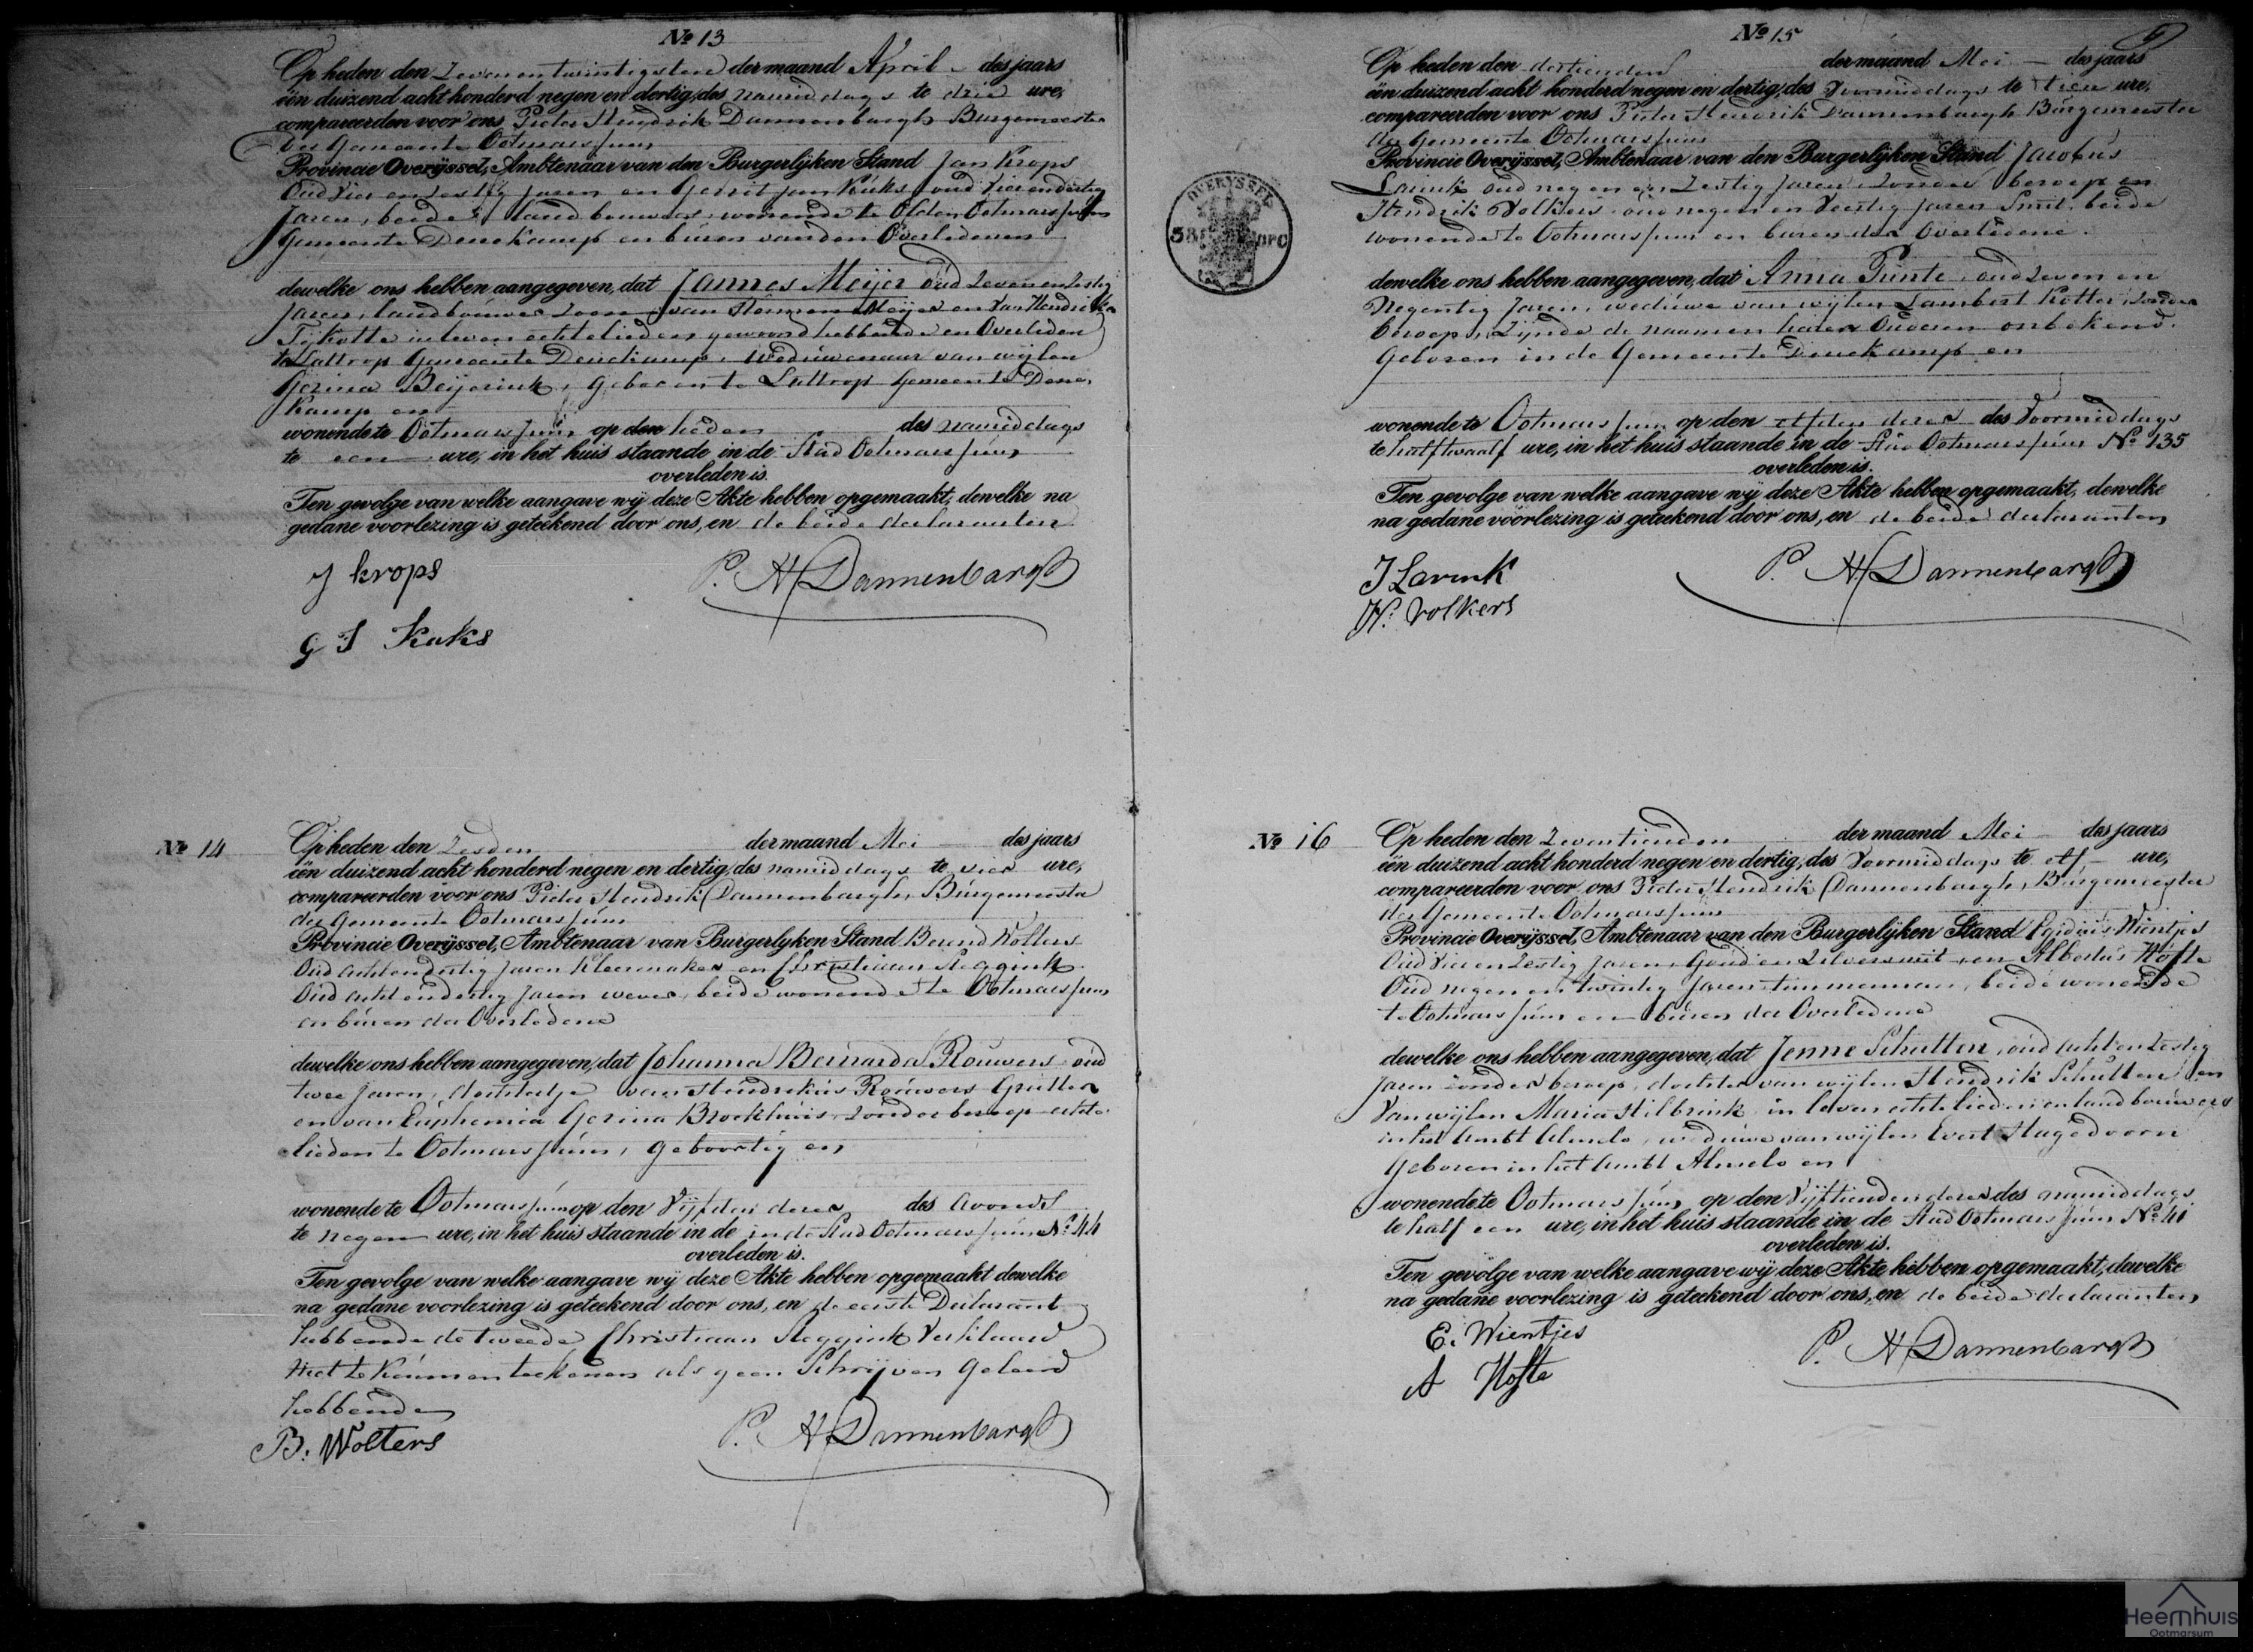 № 13
Op heden den Zevenentwintigsten der maand April des jaars
één duizend acht honderd negen en dertig, des namiddags te drie ure,
compareerden voor ons Pieter Hendrik Dannenbargh Burgemeester
der Gemeente Ootmarssum
Provincie Overijssel, Ambtenaar van den Burgerlijken Stand Jan Krops
Oud Vier en zestig Jaren en Gerrit Jan Kuks oud Vierendertig
Jaren, beide landbouwers, wonende te Olden Ootmarssum
Gemeente Denekamp en buren van den Overledenen
dewelke ons hebben aangegeven, dat Jannes Meijer oud Zevenenzestig
Jaren, landbouwer Zoon van Hermen Meijer en van Hendrika
Tijkotte in leven echtelieden gewoond hebbende en Overleden
te Lattrop Gemeente Denekamp, Weduwenaar van wijlen
Gezina Beijerink, geboren te Lattrop Gemeente Dene
kamp en
wonende te Ootmarssum op den heden des namiddags
te een ure, in het huis staande in de Stad Ootmarssum
overleden is.
Ten gevolge van welke aangave wij deze Akte hebben opgemaakt, dewelke na
gedane voorlezing is geteekend door ons, en de beide declaranten
J krops
P. H Dannenbargh
G J Kuks
№ 14
Op heden den Zesden der maand Mei des jaars
één duizend acht honderd negen en dertig, des namiddags te vier ure,
compareerden voor ons Pieter Hendrik Dannenbargh, Burgemeester
der Gemeente Ootmarssum
Provincie Overijssel, Ambtenaar van Burgerlyken Stand Berend Wolters
Oud achtendertig Jaren Kleermaker en Christiaan Reggink
Oud achtendertig Jaren wever, beide wonende te Ootmarssum
en buren der Overledene
dewelke ons hebben aangegeven, dat Johanna Bernarda Rouwers oud
twee Jaren, dochtertje van Hendrikus Rouwers
en van Euphemia Gezina Broekhuis, zonder beroep echte
lieden te Ootmarssum, geboortig en
wonende te Ootmarssum op den Vijfden dezer des avonds
te negen ure, in het huis staande in de in de Stad Ootmarssum № 44
overleden is.
Ten gevolge van welke aangave wij deze Akte hebben opgemaakt dewelke
na gedane voorlezing is geteekend door ons, en de eerste Declarant
hebbende de tweede Christiaan Reggink Verklaard
niet te kunnen teekenen als geen Schrijven geleerd
hebbende
B. Wolters
P. H Dannenbargh
№ 15
Op heden den dertienden der maand Mei des jaars
één duizend acht honderd negen en dertig, des Voormiddags te tien ure,
compareerden voor ons Pieter Hendrik Dannenbargh Burgemeester
der Gemeente Ootmarssum
Provincie Overijssel, Ambtenaar van den Burgerlijken Stand Jacobus
Lavink oud negen en Zestig Jaren, Zonder beroep en
Hendrik Volkers oud negen en Veertig Jaren Smit, beide
wonende te Ootmarssum en buren der Overledene.
OVERYSSEL
dewelke ons hebben aangegeven, dat Anna Punte, oud zeven en
Negentig Jaren, weduwe van wijlen Lambert Kotter, zonder
beroep, Zijnde de naamen harer Ouderen onbekend.
Geboren in de Gemeente Denekamp en
wonende te Ootmarssum op den elfden dezer des Voormiddags
te half twaalf ure, in het huis staande in de Stad Ootmarssum № 135
overleden is.
Ten gevolge van welke aangave wij deze Akte hebben opgemaakt, dewelke
na gedane voorlezing is geteekend door ons, en de beide declaranten
J Lavink
P. H Dannenbargh
H. Volkers
№ 16
Op heden den Zeventienden der maand Mei des jaars
één duizend acht honderd negen en dertig, des Voormiddags te elf ure,
compareerden voor ons Pieter Hendrik Dannenbargh, Burgemeester
der Gemeente Ootmarssum
Provincie Overijssel, Ambtenaar van den Burgerlijken Stand Egidius Wientjes
Oud Vier en Zestig Jaren, Goud en Zilversmit, en Albertus Hofte
Oud negen en twintig Jaren timmerman, beide wonende
te Ootmarssum en buren der Overledene
dewelke ons hebben aangegeven, dat Jenne Schutten, oud achtenzestig
Jaren zonder beroep, dochter van wijlen Hendrik Schutten en
Van wijlen Maria Hilbrink in leven echtelieden en landbouwers
in het Ambt Almelo, weduwe van wijlen Evert Hagedoorn
Geboren in het Ambt Almelo en
wonende te Ootmarssum op den Vijftienden dezer des namiddags
te half een ure, in het huis staande in de Stad Ootmarssum № 41
overleden is.
Ten gevolge van welke aangave wij deze Akte hebben opgemaakt, dewelke
na gedane voorlezing is geteekend door ons, en de beide declaranten
E. Wientjes
P. H Dannenbargh
A Hofte
Heemhuis
Ootmarsum